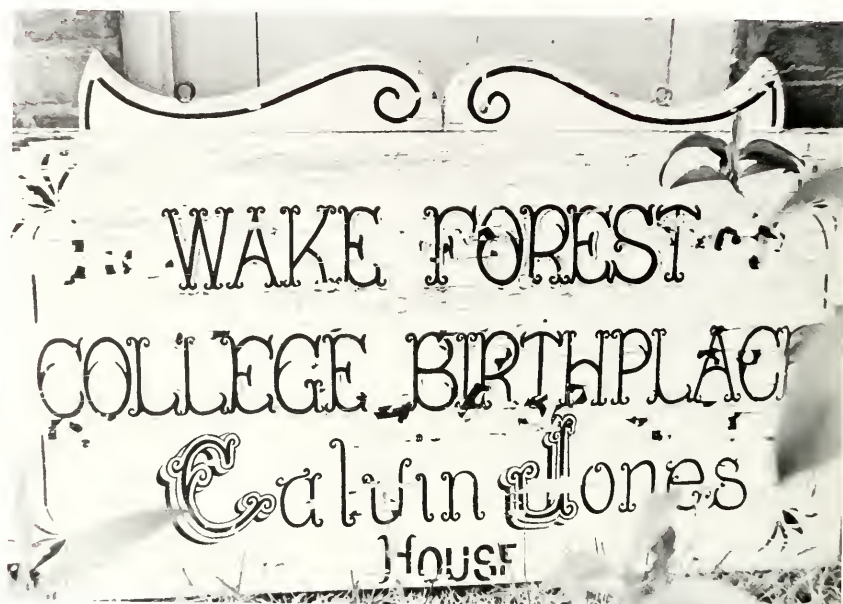 WAKE FOREST
COLLEGE BIRTHPLAC
Calvin Jones
HOUSE